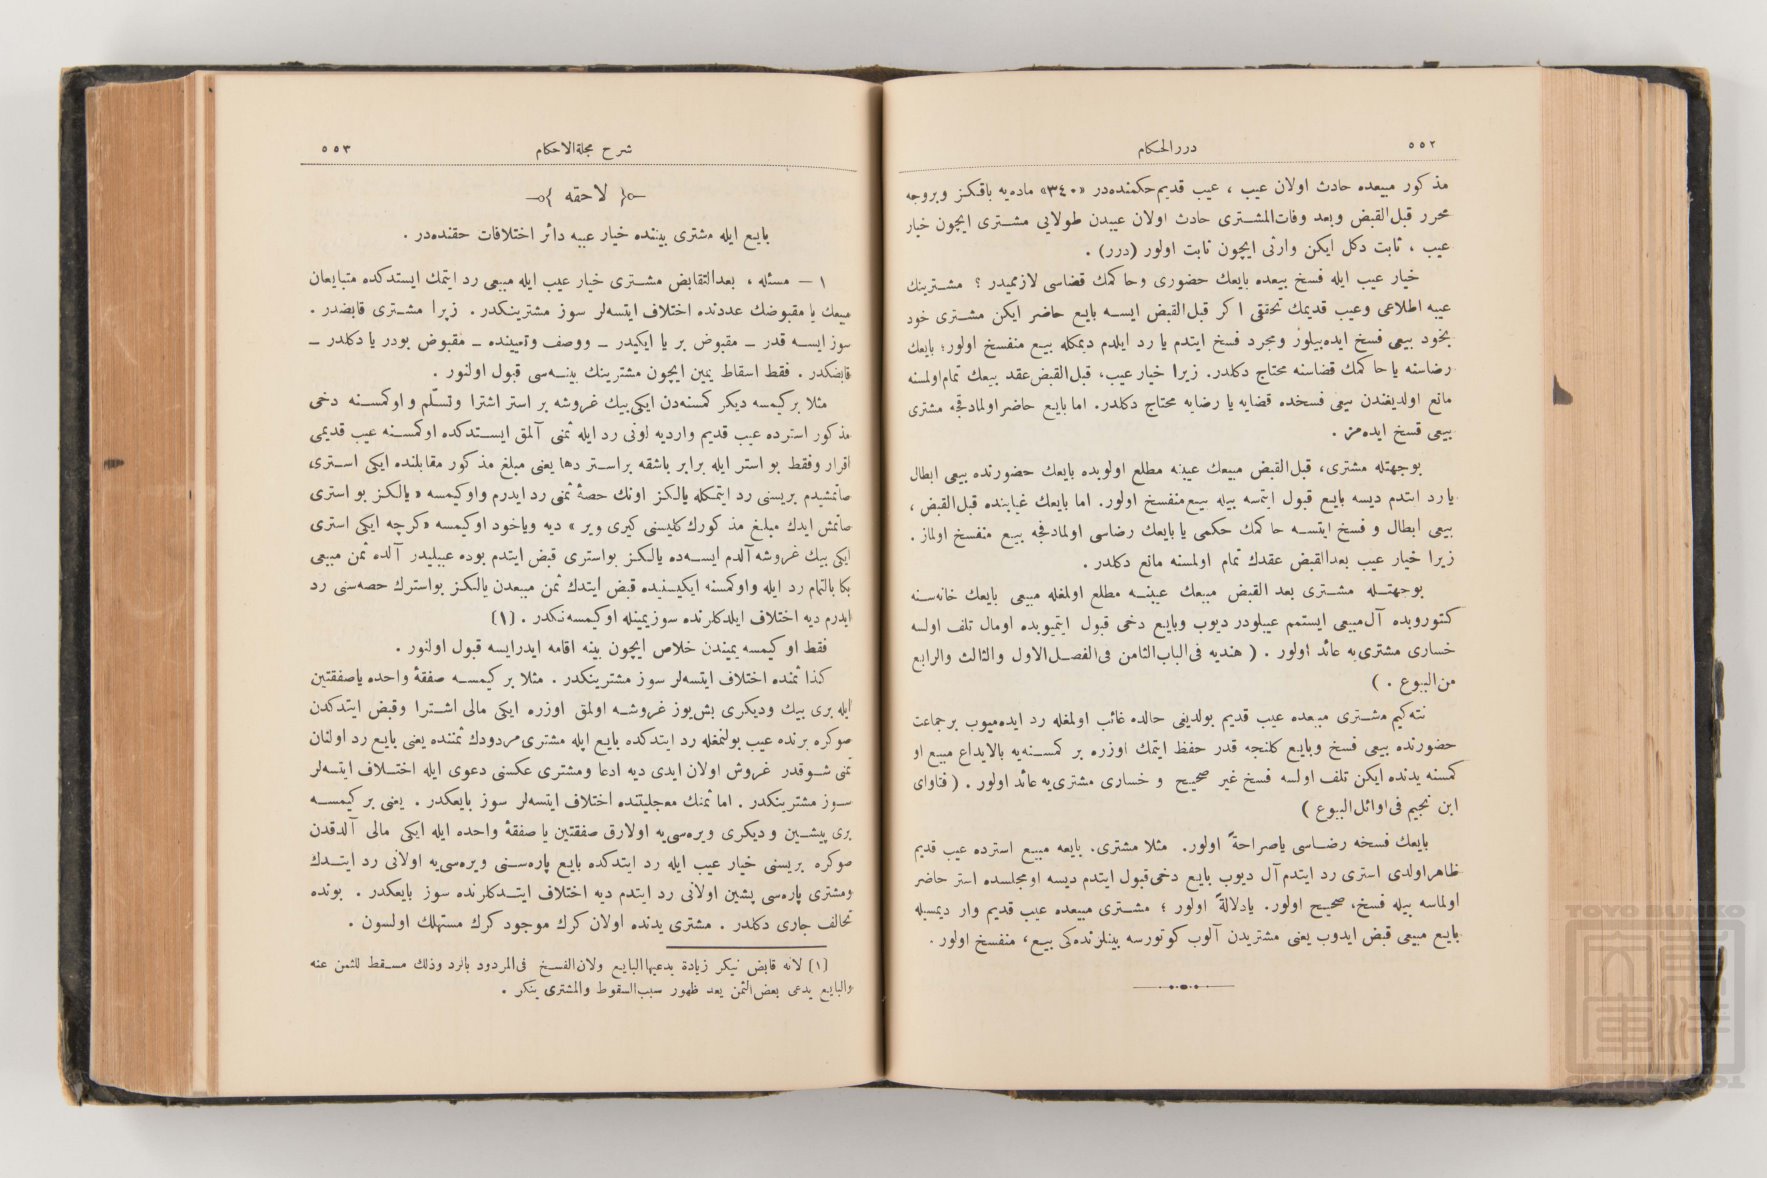 ٥٥٢
دررالحكام
مذكور مبيعده حادث اولان عيب ، عيب قديم حكمنده‌در «٣٤٠» ماده‌يه باقكز وبروجه
محرر قبل‌القبض وبعد وفات‌المشترى حادث اولان عيبدن طولايى مشترى ايچون خيار
عيب ، ثابت دكل ايكن وارثى ايچون ثابت اولور (درر) .
خيار عيب ايله فسخ بيعده بايعك حضورى وحاكمك قضاسى لازمميدر ؟ مشترينك
عيبه اطلاعى وعيب قديمك تحققى اكر قبل‌القبض ايسه بايع حاضر ايكن مشترى خود
بخود بيعى فسخ ايده‌بيلور ومجرد فسخ ايتدم يا رد ايلدم ديمكله بيع منفسخ اولور؛ بايعك
رضاسنه ياحاكمك قضاسنه محتاج دكلدر. زيرا خيار عيب، قبل‌القبض عقد بيعك تمام اولمسنه
مانع اولديغندن بيعى فسخده قضايه يا رضايه محتاج دكلدر. اما بايع حاضر اولمادقجه مشترى
بيعى فسخ ايده‌مز .
بوجهتله مشترى، قبل‌القبض مبيعك عيبنه مطلع اولوبده بايعك حضورنده بيعى ابطال
يا رد ايتدم ديسه بايع قبول ايتمسه بيله بيع منفسخ اولور. اما بايعك غيابنده قبل‌القبض ،
بيعى ابطال و فسخ ايتسه حاكمك حكمى يا بايعك رضاسى اولمادقجه بيع منفسخ اولماز .
زيرا خيار عيب بعدالقبض عقدك تمام اولمسنه مانع دكلدر .
بوجهتله مشترى بعد القبض مبيعك عيبنه مطلع اولمغله مبيعى بايعك خانه‌سنه
كتوروبده آل مبيعى ايستمم عيبلودر ديوب وبايع دخى قبول ايتميوبده اومال تلف اولسه
خسارى مشترى‌يه عائد اولور . ( هنديه فى‌الباب‌الثامن فى‌الفصل‌الاول والثالث والرابع
من‌البيوع . )
نته‌كيم مشترى مبيعده عيب قديم بولديغى حالده غائب اولمغله رد ايده‌ميوب برجماعت
حضورنده بيعى فسخ وبايع كلنجه قدر حفظ ايتمك اوزره بر كمسنه‌يه بالايداع مبيع او
كمسنه يدنده ايكن تلف اولسه فسخ غير صحيح و خسارى مشترى‌يه عائد اولور . ( فتاواى
ابن نجيم فى اوائل‌البيوع )
بايعك فسخه رضاسى ياصراحةً اولور. مثلا مشترى، بايعه مبيع استرده عيب قديم
ظاهر اولدى استرى رد ايتدم آل ديوب بايع دخى قبول ايتدم ديسه اومجلسده استر حاضر
اولماسه بيله فسخ، صحيح اولور. يادلالةً اولور ؛ مشترى مبيعده عيب قديم وار ديمسيله
بايع مبيعى قبض ايدوب يعنى مشتريدن آلوب كوتورسه بينلرنده‌كى بيع، منفسخ اولور.
شرح مجلةالاحكام
٥٥٣
لاحقه
بايع ايله مشترى بيننده خيار عيبه دائر اختلافات حقنده‌در .
١ – مسئله ، بعدالتقابض مشترى خيار عيب ايله مبيعى رد ايتمك ايستدكده متبايعان
مبيعك يا مقبوضك عددنده اختلاف ايتسه‌لر سوز مشترينكدر. زيرا مشترى قابضدر .
سوز ايسه قدر – مقبوض بر يا ايكيدر – ووصف وتعيينده – مقبوض بودر يا دكلدر –
قابضكدر . فقط اسقاط يمين ايچون مشترينك بينه‌سى قبول اولنور .
مثلا بركيمسه ديكر كمسنه‌دن ايكى بيك غروشه بر استر اشترا وتسلّم و اوكمسنه دخى
مذكور استرده عيب قديم وارديه اونى رد ايله ثمنى آلمق ايستدكده اوكمسنه عيب قديمى
اقرار وفقط بو استر ايله برابر باشقه براستر دها يعنى مبلغ مذكور مقابلنده ايكى استرى
صاتمشيدم بريسنى رد ايتمكله يالكز اونك حصهٔ ثمنى رد ايدرم واوكيمسه « يالكز بو استرى
صاتمش ايدك مبلغ مذكورك كليسنى كيرى وير » ديه وياخود اوكيمسه «كرچه ايكى استرى
ايكى بيك غروشه آلدم ايسه‌ده يالكز بواسترى قبض ايتدم بوده عيبليدر آلده ثمن مبيعى
بكا بالتمام رد ايله واوكمسنه ايكيسنيده قبض ايتدك ثمن مبيعدن يالكز بواسترك حصه‌سنى رد
ايدرم ديه اختلاف ايلدكلرنده سوز يمينله اوكيمسه‌نكدر . (١)
فقط او كيمسه يميندن خلاص ايچون بينه اقامه ايدرايسه قبول اولنور .
كذا ثمنده اختلاف ايتسه‌لر سوز مشترينكدر . مثلا بر كيمسه صفقهٔ واحده ياصفقتين
ايله برى بيك وديكرى بش‌يوز غروشه اولمق اوزره ايكى مالى اشترا وقبض ايتدكدن
صوكره برنده عيب بولنمغله رد ايتدكده بايع ايله مشترى مردودك ثمننده يعنى بايع رد اولنان
ثمنى شوقدر غروش اولان ايدى ديه ادعا ومشترى عكسنى دعوى ايله اختلاف ايتسه‌لر
سوز مشترينكدر . اما ثمنك معجليتنده اختلاف ايتسه‌لر سوز بايعكدر . يعنى بر كيمسه
برى پيشين و ديكرى ويره‌سى‌يه اولارق صفقتين يا صفقهٔ واحده ايله ايكى مالى آلدقدن
صوكره بريسنى خيار عيب ايله رد ايتدكده بايع پاره‌سنى ويره‌سى‌يه اولانى رد ايتدك
ومشترى پاره‌سى پشين اولانى رد ايتدم ديه اختلاف ايتدكلرنده سوز بايعكدر . بونده
تحالف جارى دكلدر . مشترى يدنده اولان كرك موجود كرك مستهلك اولسون .
(١) لانه قابض نيكر زيادة يدعيهاالبايع ولان‌الفسخ فى‌المردود بالرد وذلك مسقط للثمن عنه
والبايع يدعى بعض‌الثمن بعد ظهور سبب‌السقوط والمشترى ينكر .
TOYO BUNKO